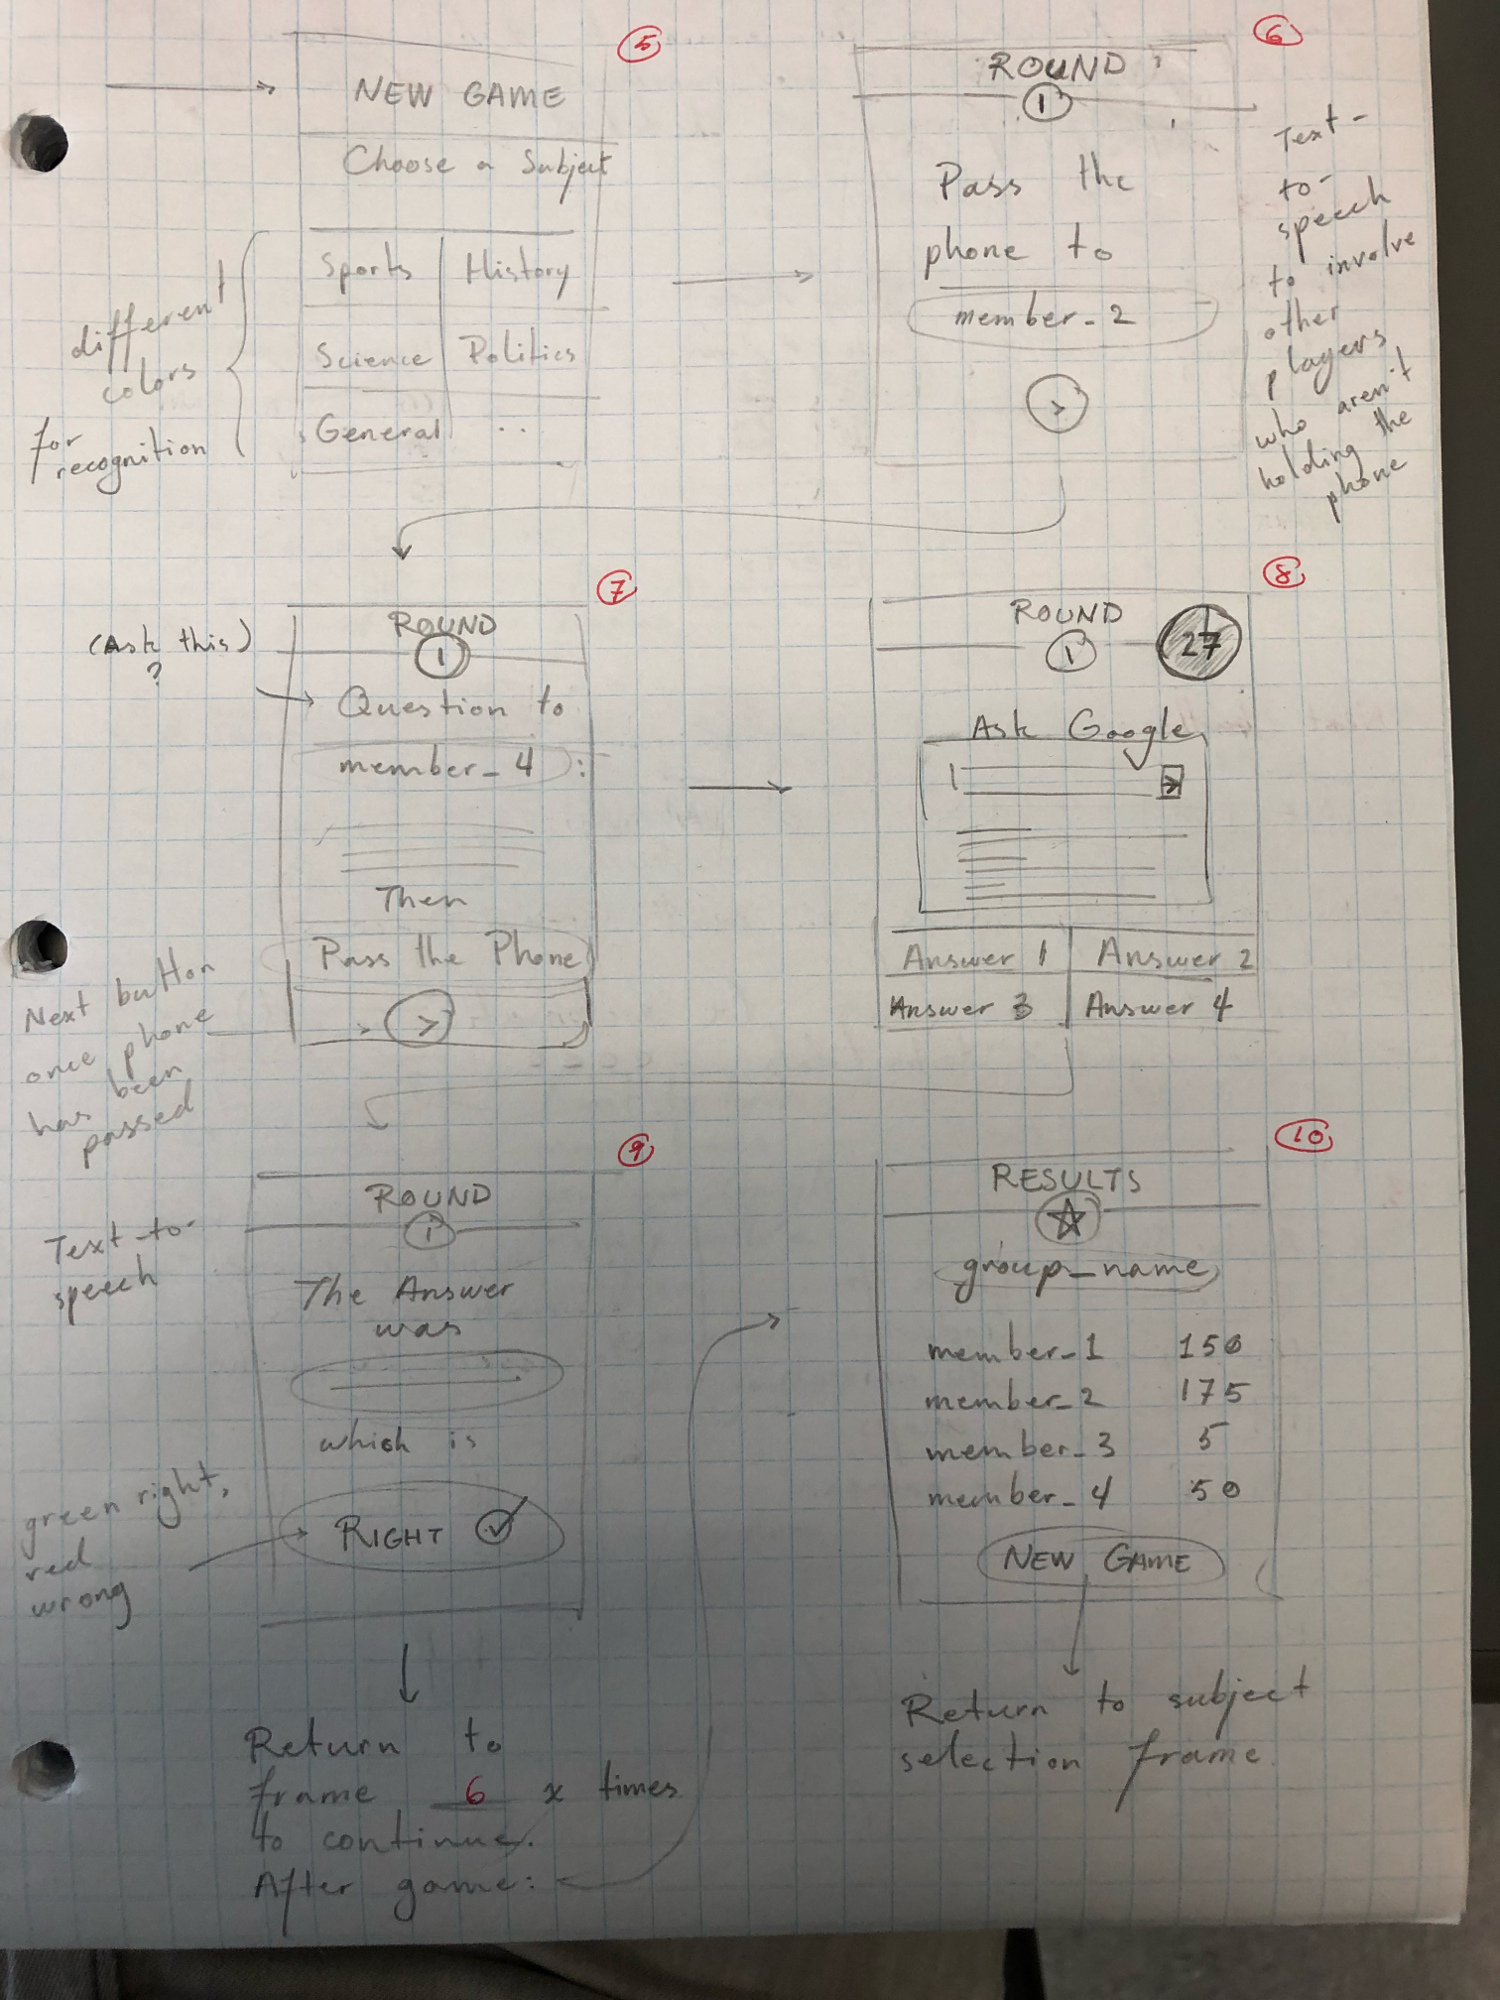 5
NEW GAME
Choose a Subject
Sports History
Science Politics
General ..
different
colors
for
recognition
6
ROUND
1
Pass the
phone to
member_2
>
Text-
to-
speech
to involve
other
players
who aren't
holding the
phone
7
ROUND
1
(Ask this)
?
Question to
member_4 :
Then
Pass the Phone
>
Next button
once phone
has been
passed
8
ROUND
1
27
Ask Google
Answer 1 Answer 2
Answer 3 Answer 4
9
ROUND
1
Text-to-
speech
The Answer
was
which is
RIGHT
green right,
red
wrong
Return to
frame 6 x times
to continue.
After game:
10
RESULTS
group_name
member_1 150
member_2 175
member_3 5
member_4 50
NEW GAME
Return to subject
selection frame.